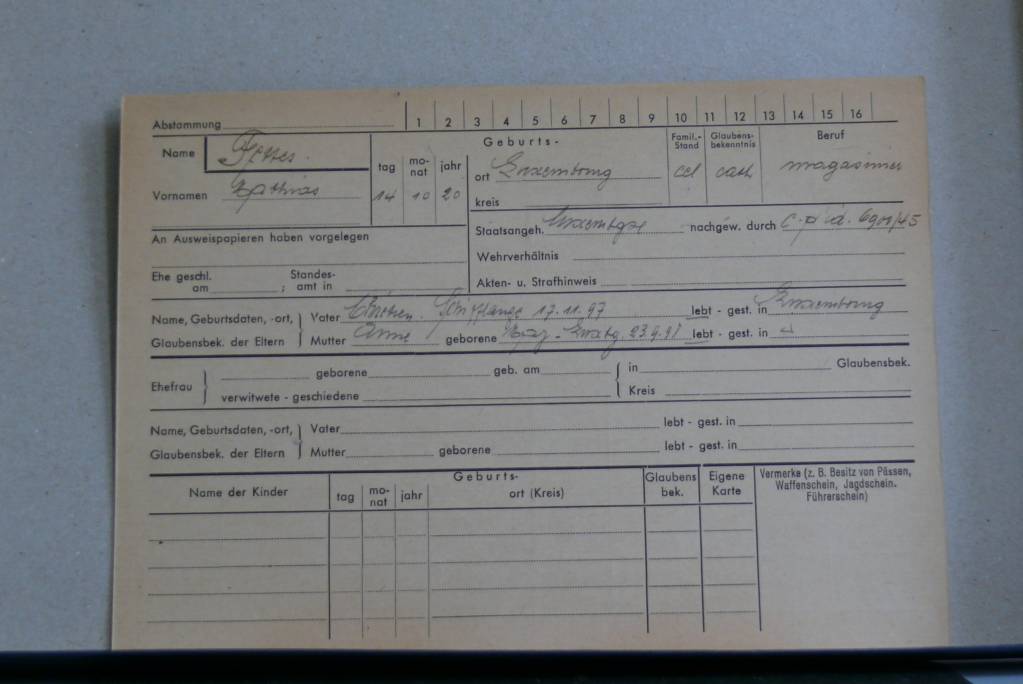 Abstammung 1 2 3 4 5 6 7 8 9 10 11 12 13 14 15 16
Name
Vornamen Mathias
Geburts-
tag monat jahr
14 10 20
ort Luxembourg
kreis
Famil.-Stand cel
Glaubensbekenntnis cath
Beruf magasinier
An Ausweispapieren haben vorgelegen
Staatsangeh. nachgew. durch 6901/45
Wehrverhältnis
Ehe geschl. am ; Standesamt in
Akten- u. Strafhinweis
Name, Geburtsdaten, -ort, Vater Schifflange 17.11.97 lebt - gest. in Luxembourg
Glaubensbek. der Eltern Mutter Anne geborene lebt - gest. in
Ehefrau geborene geb. am in Glaubensbek.
verwitwete - geschiedene Kreis
Name, Geburtsdaten, -ort, Vater lebt - gest. in
Glaubensbek. der Eltern Mutter geborene lebt - gest. in
Name der Kinder
Geburts-
tag monat jahr ort (Kreis)
Glaubens bek.
Eigene Karte
Vermerke (z. B. Besitz von Pässen,
Waffenschein, Jagdschein.
Führerschein)